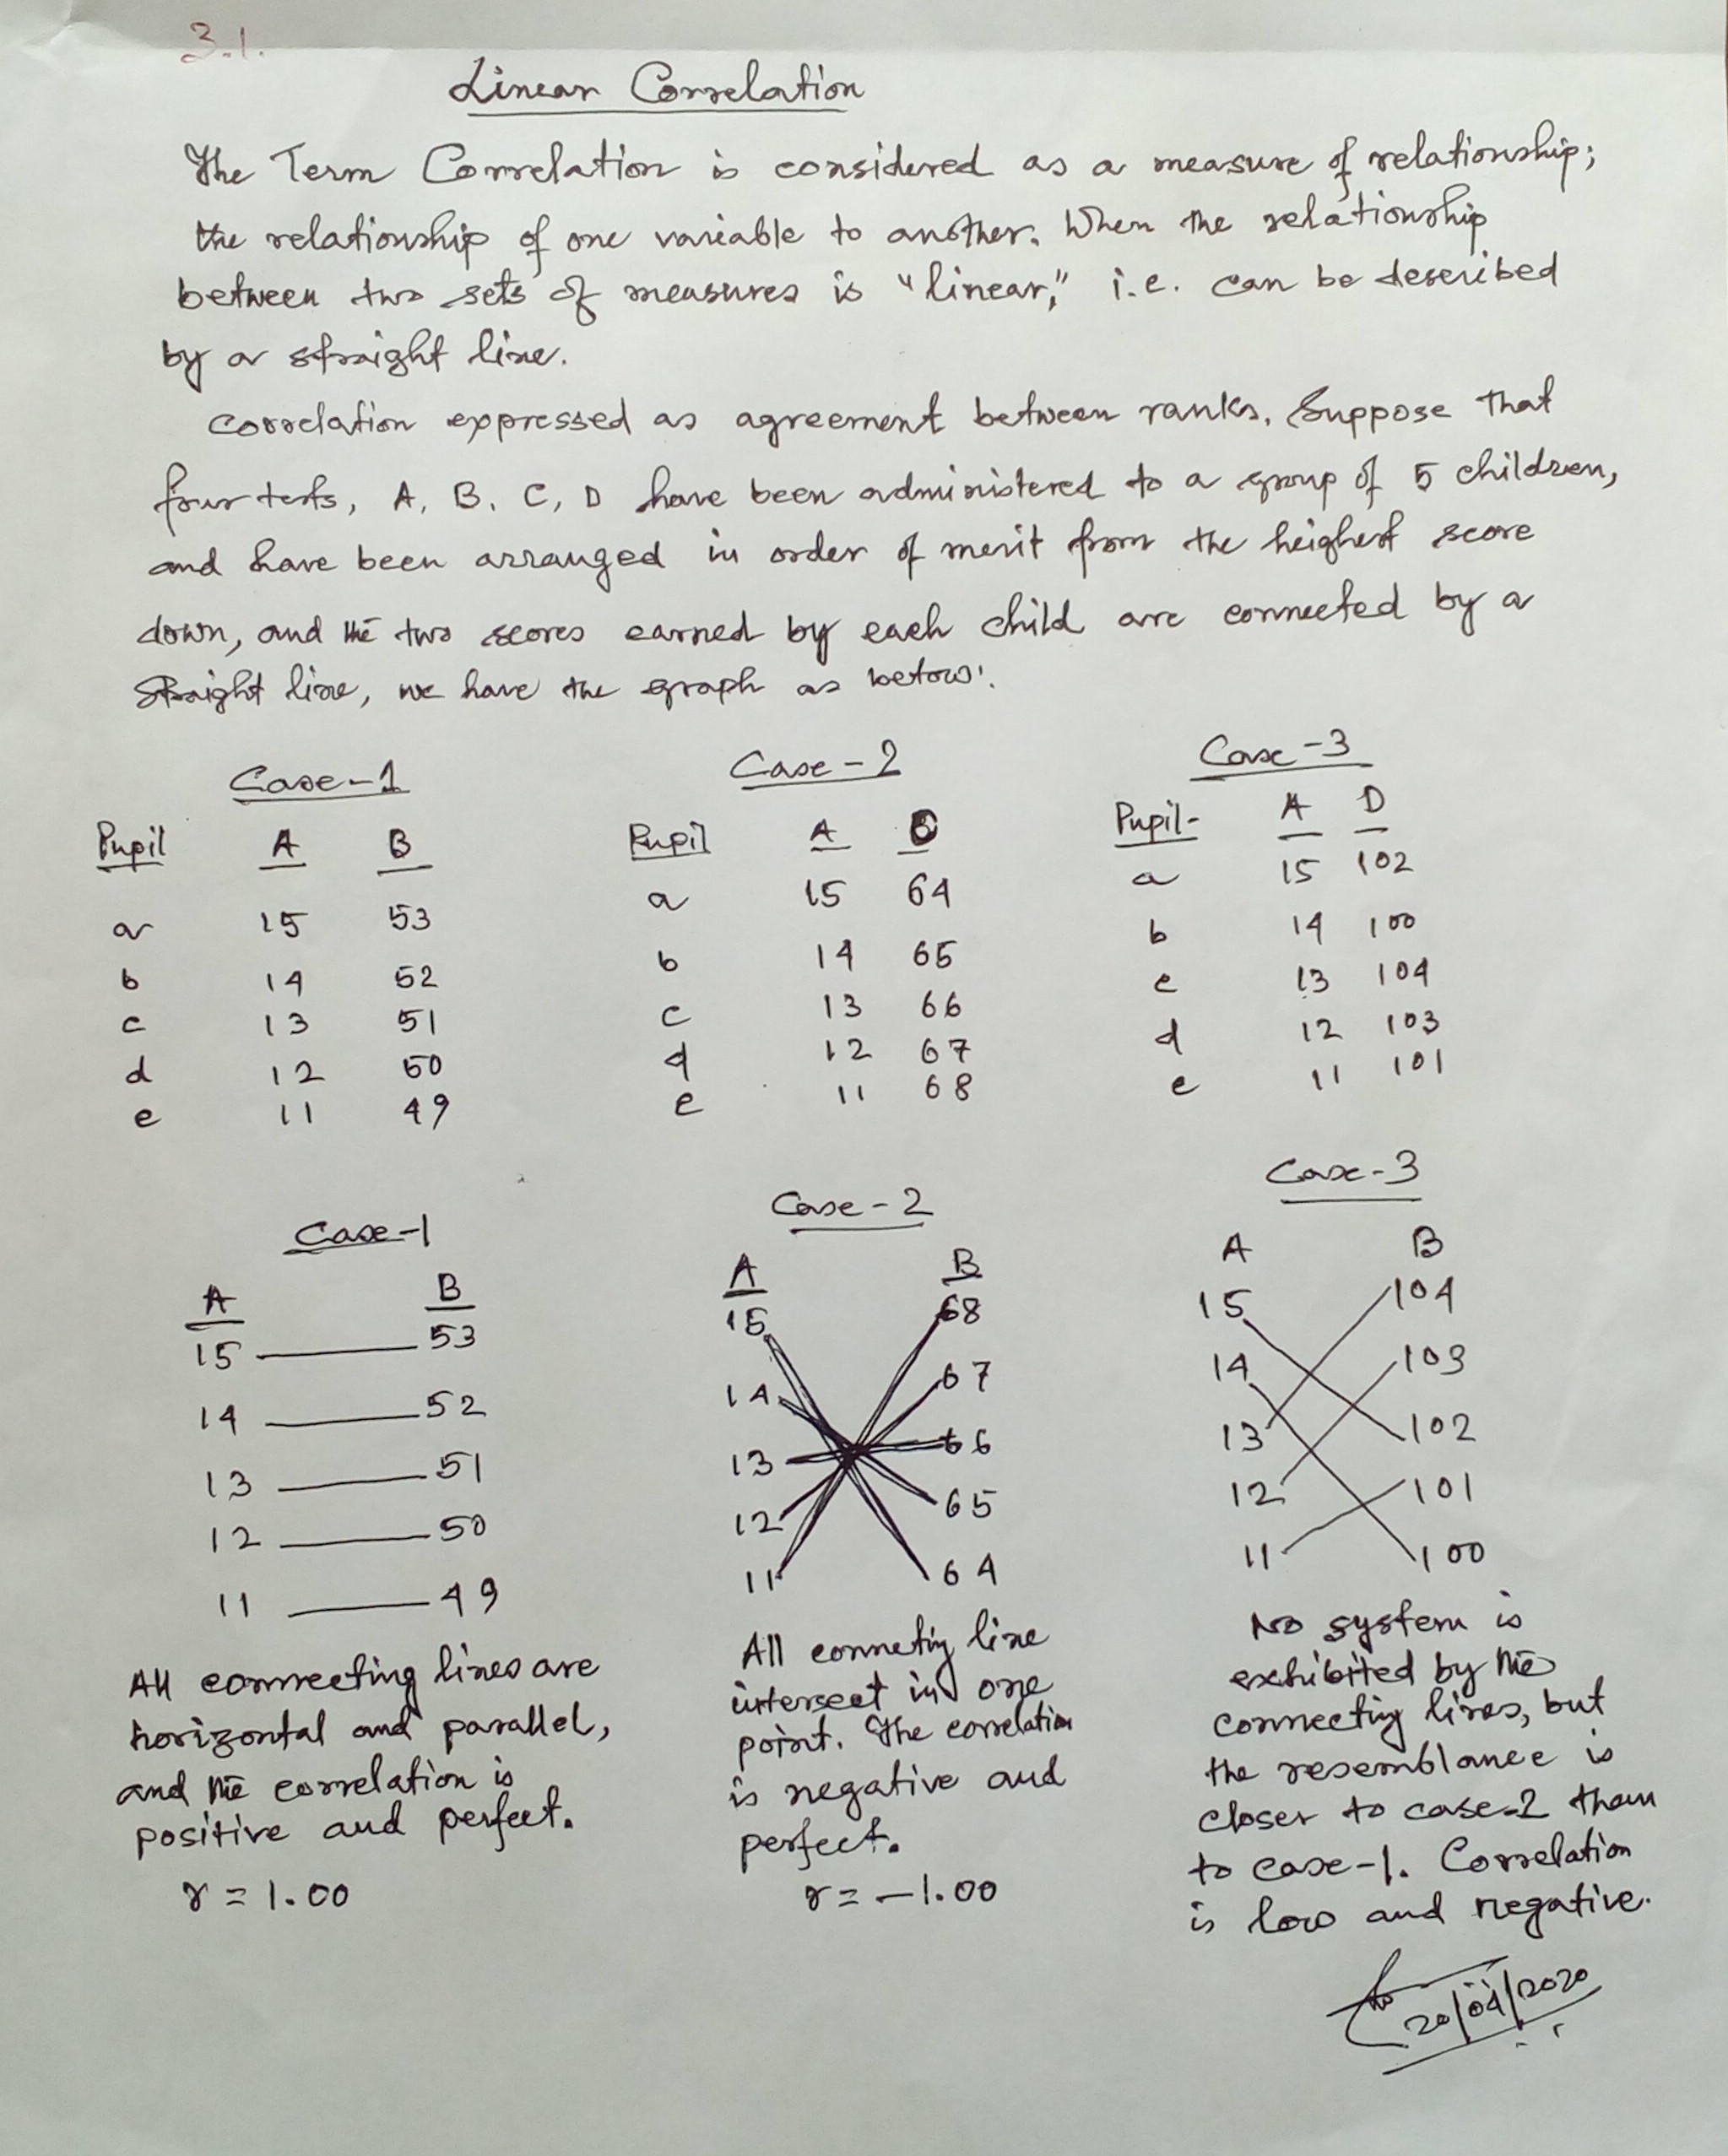 3.1.
Linear Correlation
The Term Correlation is considered as a measure of relationship;
the relationship of one variable to another. When the relationship
between two sets of measures is "linear," i.e. can be described
by a straight line.
Correlation expressed as agreement between ranks. Suppose that
four tests, A, B, C, D have been administered to a group of 5 children,
and have been arranged in order of merit from the heighest score
down, and the two scores earned by each child are connected by a
straight line, we have the graph as below:
Case-1 Case-2 Case-3
Pupil A B Pupil A Pupil- A D
a 15 53 a 15 64 a 15 102
b 14 52 b 14 65 b 14 100
c 13 51 c 13 66 c 13 104
d 12 50 d 12 67 d 12 103
e 11 49 e 11 68 e 11 101
Case-1 Case-2 Case-3
A B A B A B
15 53 15 68 15 104
14 52 14 67 14 103
13 51 13 66 13 102
12 50 12 65 12 101
11 49 11 64 11 100
All connecting lines are
horizontal and parallel,
and the correlation is
positive and perfect.
r = 1.00
All connetig line
intersect in one
point. The correlation
is negative and
perfect.
r = -1.00
No system is
exhibited by the
connecting lines, but
the resemblance is
closer to case-2 than
to case-1. Correlation
is low and negative.
20/04/2020